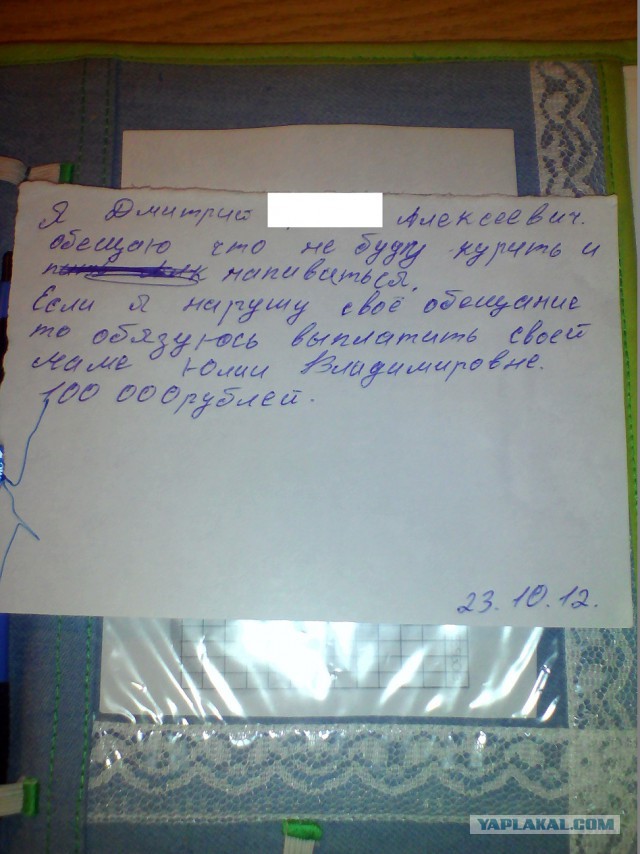 Я Дмитрий Алексеевич.
обещаю что не буду курить и
напиваться.
Если я нарушу своё обещание
то обязуюсь выплатить своей
маме Юлии Владимировне.
100 000рублей.
23.10.12.
YAPLAKAL.COM